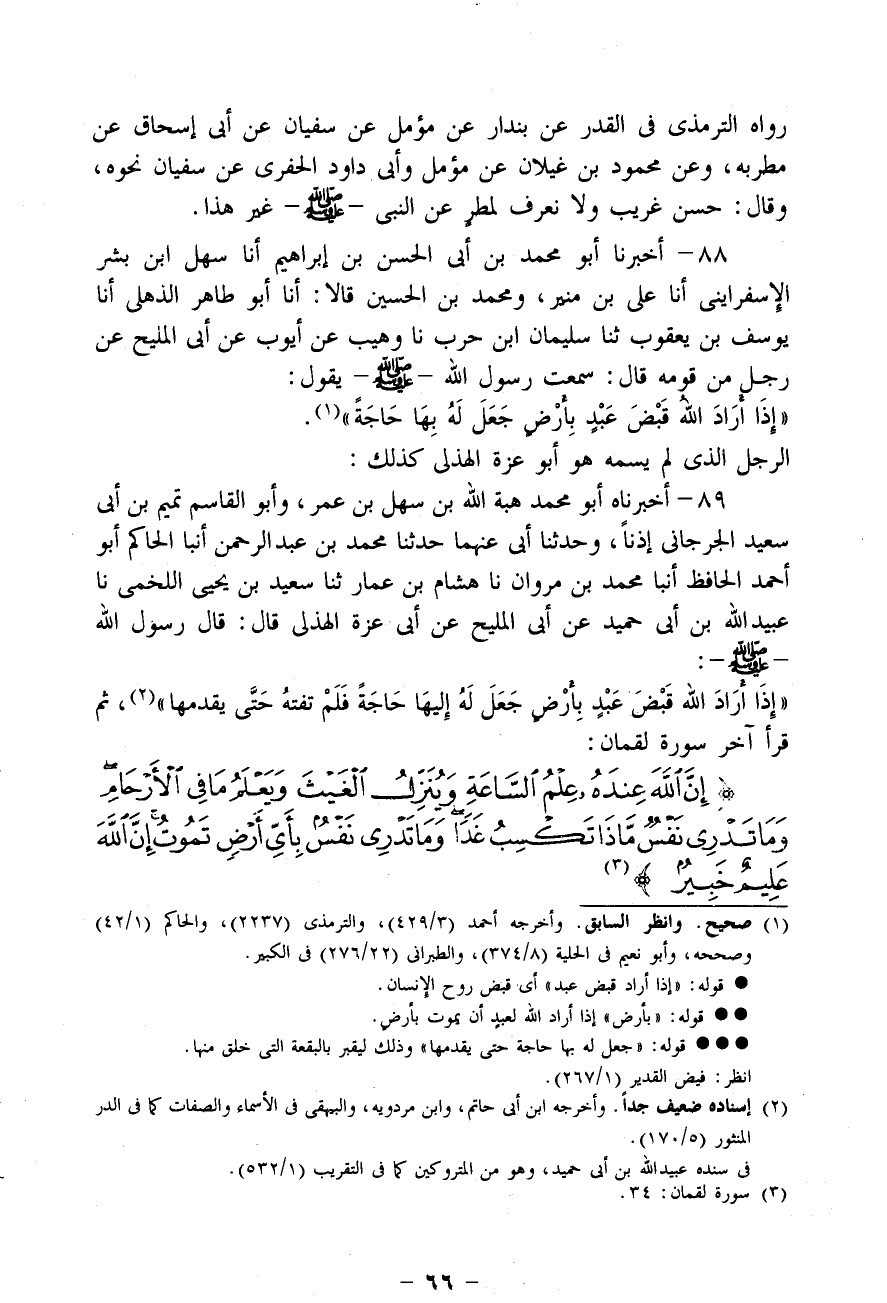 رواه الترمذى فى القدر عن بندار عن مؤمل عن سفيان عن أبى إسحاق عن
مطربه، وعن محمود بن غيلان عن مؤمل وأبى داود الحفرى عن سفيان نحوه،
وقال: حسن غريب ولا نعرف لمطرٍ عن النبى – ﷺ – غير هذا.
٨٨ – أخبرنا أبو محمد بن أبى الحسن بن إبراهيم أنا سهل ابن بشر
الإسفراينى أنا على بن منير، ومحمد بن الحسين قالا: أنا أبو طاهر الذهلى أنا
يوسف بن يعقوب ثنا سليمان ابن حرب نا وهيب عن أيوب عن أبى المليح عن
رجل من قومه قال: سمعت رسول الله – ﷺ – يقول:
«إِذَا أَرَادَ اللهُ قَبْضَ عَبْدٍ بِأَرْضٍ جَعَلَ لَهُ بِهَا حَاجَةً»(١).
الرجل الذى لم يسمه هو أبو عزة الهذلى كذلك :
٨٩ – أخبرناه أبو محمد هبة الله بن سهل بن عمر، وأبو القاسم تميم بن أبى
سعيد الجرجانى إذناً، وحدثنا أبى عنهما حدثنا محمد بن عبدالرحمن أنبا الحاكم أبو
أحمد الحافظ أنبا محمد بن مروان نا هشام بن عمار ثنا سعيد بن يحيى اللخمى نا
عبيدالله بن أبى حميد عن أبى المليح عن أبى عزة الهذلى قال: قال رسول الله
– ﷺ –:
«إِذَا أَرَادَ الله قَبْضَ عَبْدٍ بِأَرْضٍ جَعَلَ لَهُ إِليهَا حَاجَةً فَلَمْ تفتهُ حَتَّى يقدمها»(٢)، ثم
قرأ آخر سورة لقمان:
﴿ إِنَّ ٱللَّهَ عِندَهُۥ عِلْمُ ٱلسَّاعَةِ وَيُنَزِّلُ ٱلْغَيْثَ وَيَعْلَمُ مَا فِى ٱلْأَرْحَامِۖ
وَمَا تَدْرِى نَفْسٌ مَّاذَا تَكْسِبُ غَدًاۖ وَمَا تَدْرِى نَفْسٌۢ بِأَىِّ أَرْضٍ تَمُوتُۚ إِنَّ ٱللَّهَ
عَلِيمٌ خَبِيرٌۢ ﴾(٣)
(١) صحيح. وانظر السابق. وأخرجه أحمد (٤٢٩/٣)، والترمذى (٢٢٣٧)، والحاكم (٤٢/١)
وصححه، وأبو نعيم فى الحلية (٣٧٤/٨)، والطبرانى (٢٧٦/٢٢) فى الكبير.
● قوله: «إذا أراد قبض عبد» أى قبض روح الإنسان.
●● قوله: «بأرض» إذا أراد الله لعبدٍ أن يموت بأرضٍ.
●●● قوله: «جعل له بها حاجة حتى يقدمها» وذلك ليقبر بالبقعة التى خلق منها.
انظر: فيض القدير (٢٦٧/١).
(٢) إسناده ضعيف جداً. وأخرجه ابن أبى حاتم، وابن مردويه، والبيهقى فى الأسماء والصفات كما فى الدر
المنثور (١٧٠/٥).
فى سنده عبيدالله بن أبى حميد، وهو من المتروكين كما فى التقريب (٥٣٢/١).
(٣) سورة لقمان: ٣٤.
– ٦٦ –